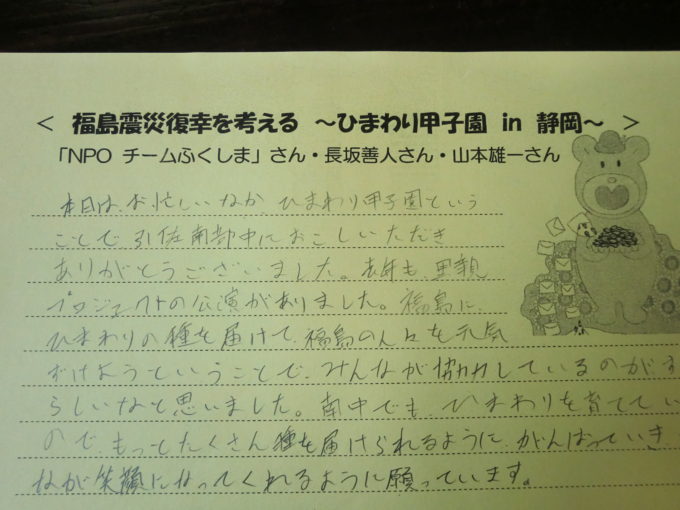 ＜ 福島震災復幸を考える ～ひまわり甲子園 in 静岡～ ＞
「NPO チームふくしま」さん・長坂善人さん・山本雄一さん
本日は、お忙しいなか、ひまわり甲子園という
ことで、引佐南部中におこしいただき
ありがとうございました。去年も、里親
プロジェクトの公演がありました。福島に、
ひまわりの種を届けて、福島の人々を元気
づけようということで、みんなが協力しているのがす
らしいなと思いました。南中でも、ひまわりを育ててい
ので、もっとたくさん種を届けられるように、がんばっていき
なが笑顔になってくれるように願っています。